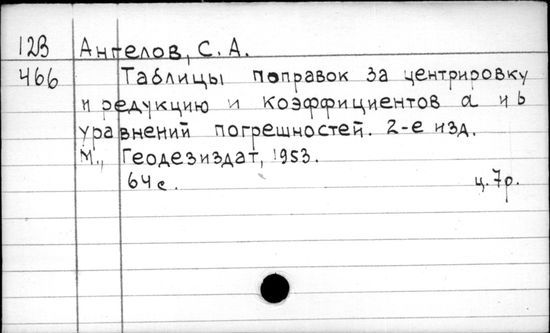 12В Ангелов, С. А.
466 Таблицы поправок за центрировку
и редукцию и коэффициентов a и b
уравнений погрешностей. 2-е изд.
М., Геодезиздат, 1953.
64 с. ц. 7р.